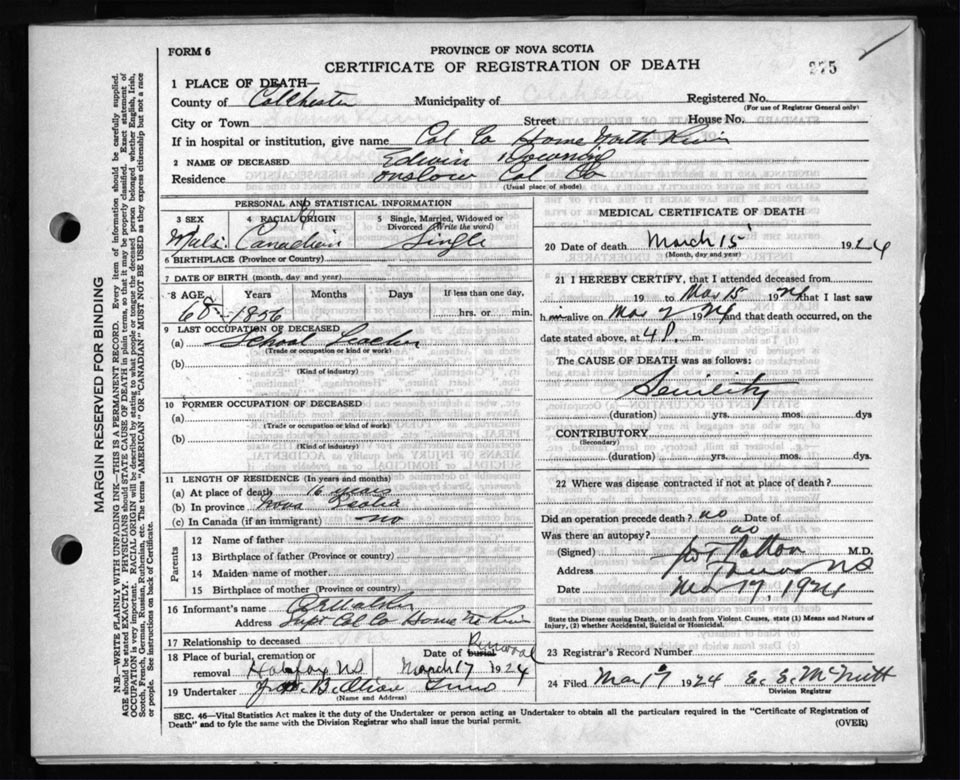 FORM 6
PROVINCE OF NOVA SCOTIA
CERTIFICATE OF REGISTRATION OF DEATH
275
1 PLACE OF DEATH—
County of Colchester Municipality of Registered No.
(For use of Registrar General only)
City or Town Street House No.
If in hospital or institution, give name Col Co Home North River
2 NAME OF DECEASED Edwin
Residence Onslow Col Co
(Usual place of abode)
PERSONAL AND STATISTICAL INFORMATION
3 SEX 4 RACIAL ORIGIN 5 Single, Married, Widowed or Divorced (Write the word)
Male Canadian Single
6 BIRTHPLACE (Province or Country)
7 DATE OF BIRTH (month, day, and year)
8 AGE Years Months Days If less than one day,
68 - 1856 hrs. or min.
9 LAST OCCUPATION OF DECEASED
(a) School Teacher
(Trade or occupation or kind or work)
(b)
(Kind of industry)
10 FORMER OCCUPATION OF DECEASED
(a)
(Trade or occupation or kind of work)
(b)
(Kind of industry)
11 LENGTH OF RESIDENCE (In years and months)
(a) At place of death 16 years
(b) In province Nova Scotia
(c) In Canada (if an immigrant) no
Parents
12 Name of father
13 Birthplace of father (Province or country)
14 Maiden name of mother
15 Birthplace of mother (Province or country)
16 Informant's name
Address Supt Col Co Home N River
17 Relationship to deceased
18 Place of burial, cremation or removal Halifax NS Date of burial Removal March 17 1924
19 Undertaker Truro
(Name and Address)
MEDICAL CERTIFICATE OF DEATH
20 Date of death March 15 1924
(Month, day and year)
21 I HEREBY CERTIFY, that I attended deceased from
19 to Mar 15 1924 that I last saw
h alive on Mar 1924 and that death occurred, on the
date stated above, at 4 P. m.
The CAUSE OF DEATH was as follows:
Senility
(duration) yrs. mos. dys
CONTRIBUTORY
(Secondary)
(duration) yrs. mos. dys.
22 Where was disease contracted if not at place of death?
Did an operation precede death? no Date of
Was there an autopsy? no
(Signed) Patton M.D.
Address Truro NS
Date Mar 17, 1924
State the Disease causing Death, or in death from Violent Causes, state (1) Means and Nature of Injury, (2) whether Accidental, Suicidal or Homicidal.
23 Registrar's Record Number
24 Filed Mar 19 1924 E. E. McNutt
Division Registrar
SEC. 46—Vital Statistics Act makes it the duty of the Undertaker or person acting as Undertaker to obtain all the particulars required in the "Certificate of Registration of
Death" and to fyle the same with the Division Registrar who shall issue the burial permit.
(OVER)
MARGIN RESERVED FOR BINDING
N.B.—WRITE PLAINLY WITH UNFADING INK—THIS IS A PERMANENT RECORD. Every item of information should be carefully supplied.
AGE should be stated EXACTLY. PHYSICIANS should STATE CAUSE OF DEATH in plain terms, so that it may be properly classified. Exact statement of
OCCUPATION is very important. RACIAL ORIGIN will be described by stating to what people or tongue the deceased person belonged whether English, Irish,
Scotch, French, German, Russian, Ruthenian, etc. The terms "AMERICAN" OR "CANADIAN" MUST NOT BE USED as they express citizenship but not a race
or people. See instructions on back of Certificate.